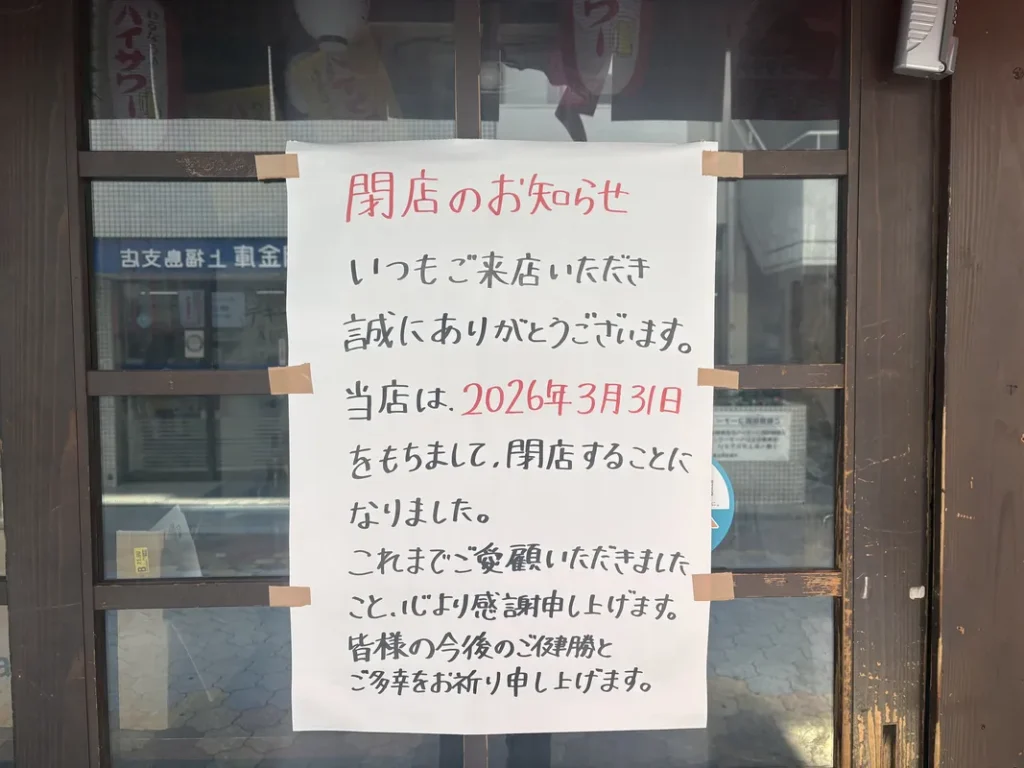 閉店のお知らせ
いつもご来店いただき
誠にありがとうございます。
当店は、2026年3月31日
をもちまして、閉店することに
なりました。
これまでご愛顧いただきました
こと、心より感謝申し上げます。
皆様の今後のご健勝と
ご多幸をお祈り申し上げます。
ハイサワー
サワー
金庫 上福島支店